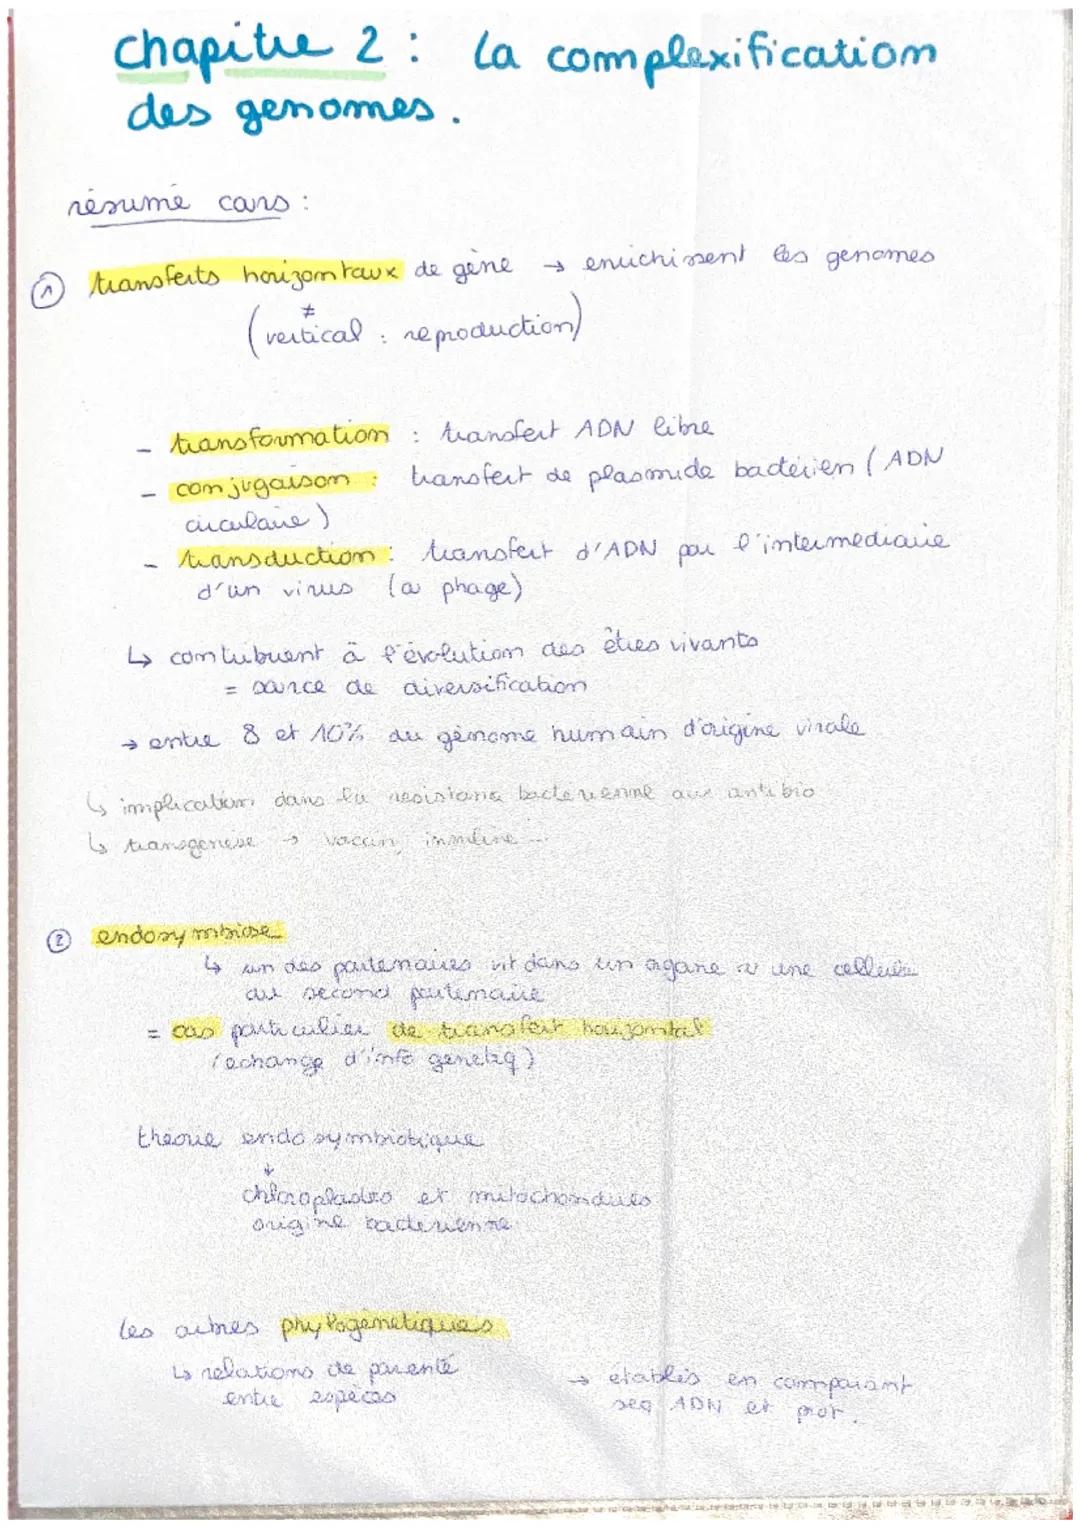 chapitre 2 : la complexification
des genomes.
résumé cours :
① transferts horizontaux de gène → enrichissent les genomes
≠
(vertical : reproduction)
- transformation : transfert ADN libre
- conjugaison : transfert de plasmide bactérien (ADN
circulaire)
- transduction : transfert d'ADN par l'intermediaire
d'un virus (a phage)
↳ contribuent à l'évolution des êtres vivants
= source de diversification
→ entre 8 et 10% du génome humain d'origine virale
↳ implication dans la resistance bacterienne aux antibio
↳ transgenese → vaccin, insuline ...
② endosymbiose
↳ un des partenaires vit dans un organe ou une cellule
du second partenaire
= cas particulier de transfert horizontal
(echange d'info genetiq)
theorie endosymbiotique
↓
chloroplastes et mitochondries
origine bacterienne
les arbres phylogénetiques
↳ relations de parenté
entre espèces
→ etablis en comparant
seq ADN et prot.